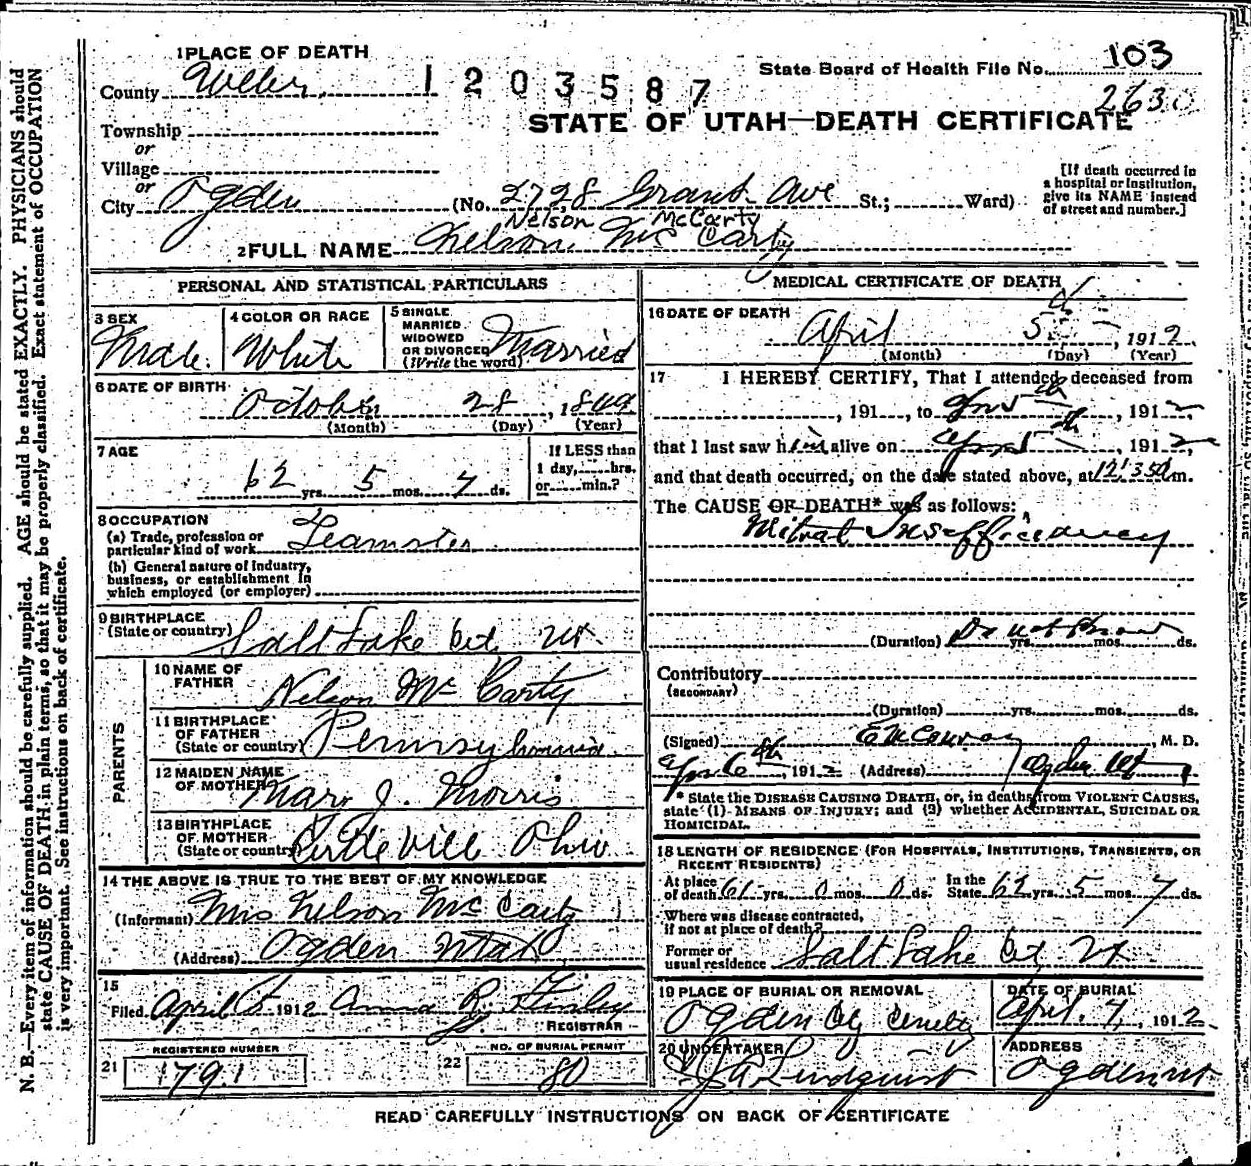 1 PLACE OF DEATH
County Weber
1203587
State Board of Health File No. 103
2630
STATE OF UTAH—DEATH CERTIFICATE
Township
or
Village
or
City Ogden (No. 2728 Grant Ave St.; Ward)
[If death occurred in a hospital or institution, give its NAME instead of street and number.]
Nelson McCarty
2 FULL NAME Nelson Mc Carty
PERSONAL AND STATISTICAL PARTICULARS
3 SEX Male
4 COLOR OR RACE White
5 SINGLE MARRIED WIDOWED OR DIVORCED (Write the word) Married
6 DATE OF BIRTH October 28, 1849
(Month) (Day) (Year)
7 AGE
62 yrs. 5 mos. 7 ds.
If LESS than 1 day, hrs. or min.?
8 OCCUPATION
(a) Trade, profession or particular kind of work Teamster
(b) General nature of industry, business, or establishment in which employed (or employer)
9 BIRTHPLACE (State or country) Salt Lake Cty Ut
PARENTS
10 NAME OF FATHER Nelson Mc Carty
11 BIRTHPLACE OF FATHER (State or country) Pennsylvania
12 MAIDEN NAME OF MOTHER Mary J. Morris
13 BIRTHPLACE OF MOTHER (State or country) Ohio
14 THE ABOVE IS TRUE TO THE BEST OF MY KNOWLEDGE
(Informant) Mrs Nelson Mc Carty
(Address) Ogden Utah
15
Filed April 5 1912 Anna R. Finley
REGISTRAR
REGISTERED NUMBER
21 1791
NO. OF BURIAL PERMIT
22 80
MEDICAL CERTIFICATE OF DEATH
16 DATE OF DEATH
April 5th, 1912
(Month) (Day) (Year)
17 I HEREBY CERTIFY, That I attended deceased from
, 191 , to Apr 5th, 1912
that I last saw him alive on Apr 5th, 1912,
and that death occurred, on the date stated above, at 12:35 am.
The CAUSE OF DEATH* was as follows:
Mitral Insufficiency
(Duration) Do not Know yrs. mos. ds.
Contributory (SECONDARY)
(Duration) yrs. mos. ds.
(Signed) E M Conroy, M. D.
Apr 6th, 1912 (Address) Ogden Ut
* State the DISEASE CAUSING DEATH, or, in deaths from VIOLENT CAUSES, state (1) MEANS OF INJURY; and (2) whether ACCIDENTAL, SUICIDAL OR HOMICIDAL.
18 LENGTH OF RESIDENCE (FOR HOSPITALS, INSTITUTIONS, TRANSIENTS, OR RECENT RESIDENTS)
At place of death 61 yrs. 0 mos. 0 ds. In the State 62 yrs. 5 mos. 7 ds.
Where was disease contracted, if not at place of death?
Former or usual residence Salt Lake Cty Ut
19 PLACE OF BURIAL OR REMOVAL Ogden Cty Cemetery
DATE OF BURIAL April 7, 1912
20 UNDERTAKER J A Lindquist
ADDRESS Ogden Ut
READ CAREFULLY INSTRUCTIONS ON BACK OF CERTIFICATE
N. B.—Every item of information should be carefully supplied. AGE should be stated EXACTLY. PHYSICIANS should
state CAUSE OF DEATH in plain terms, so that it may be properly classified. Exact statement of OCCUPATION
is very important. See instructions on back of certificate.